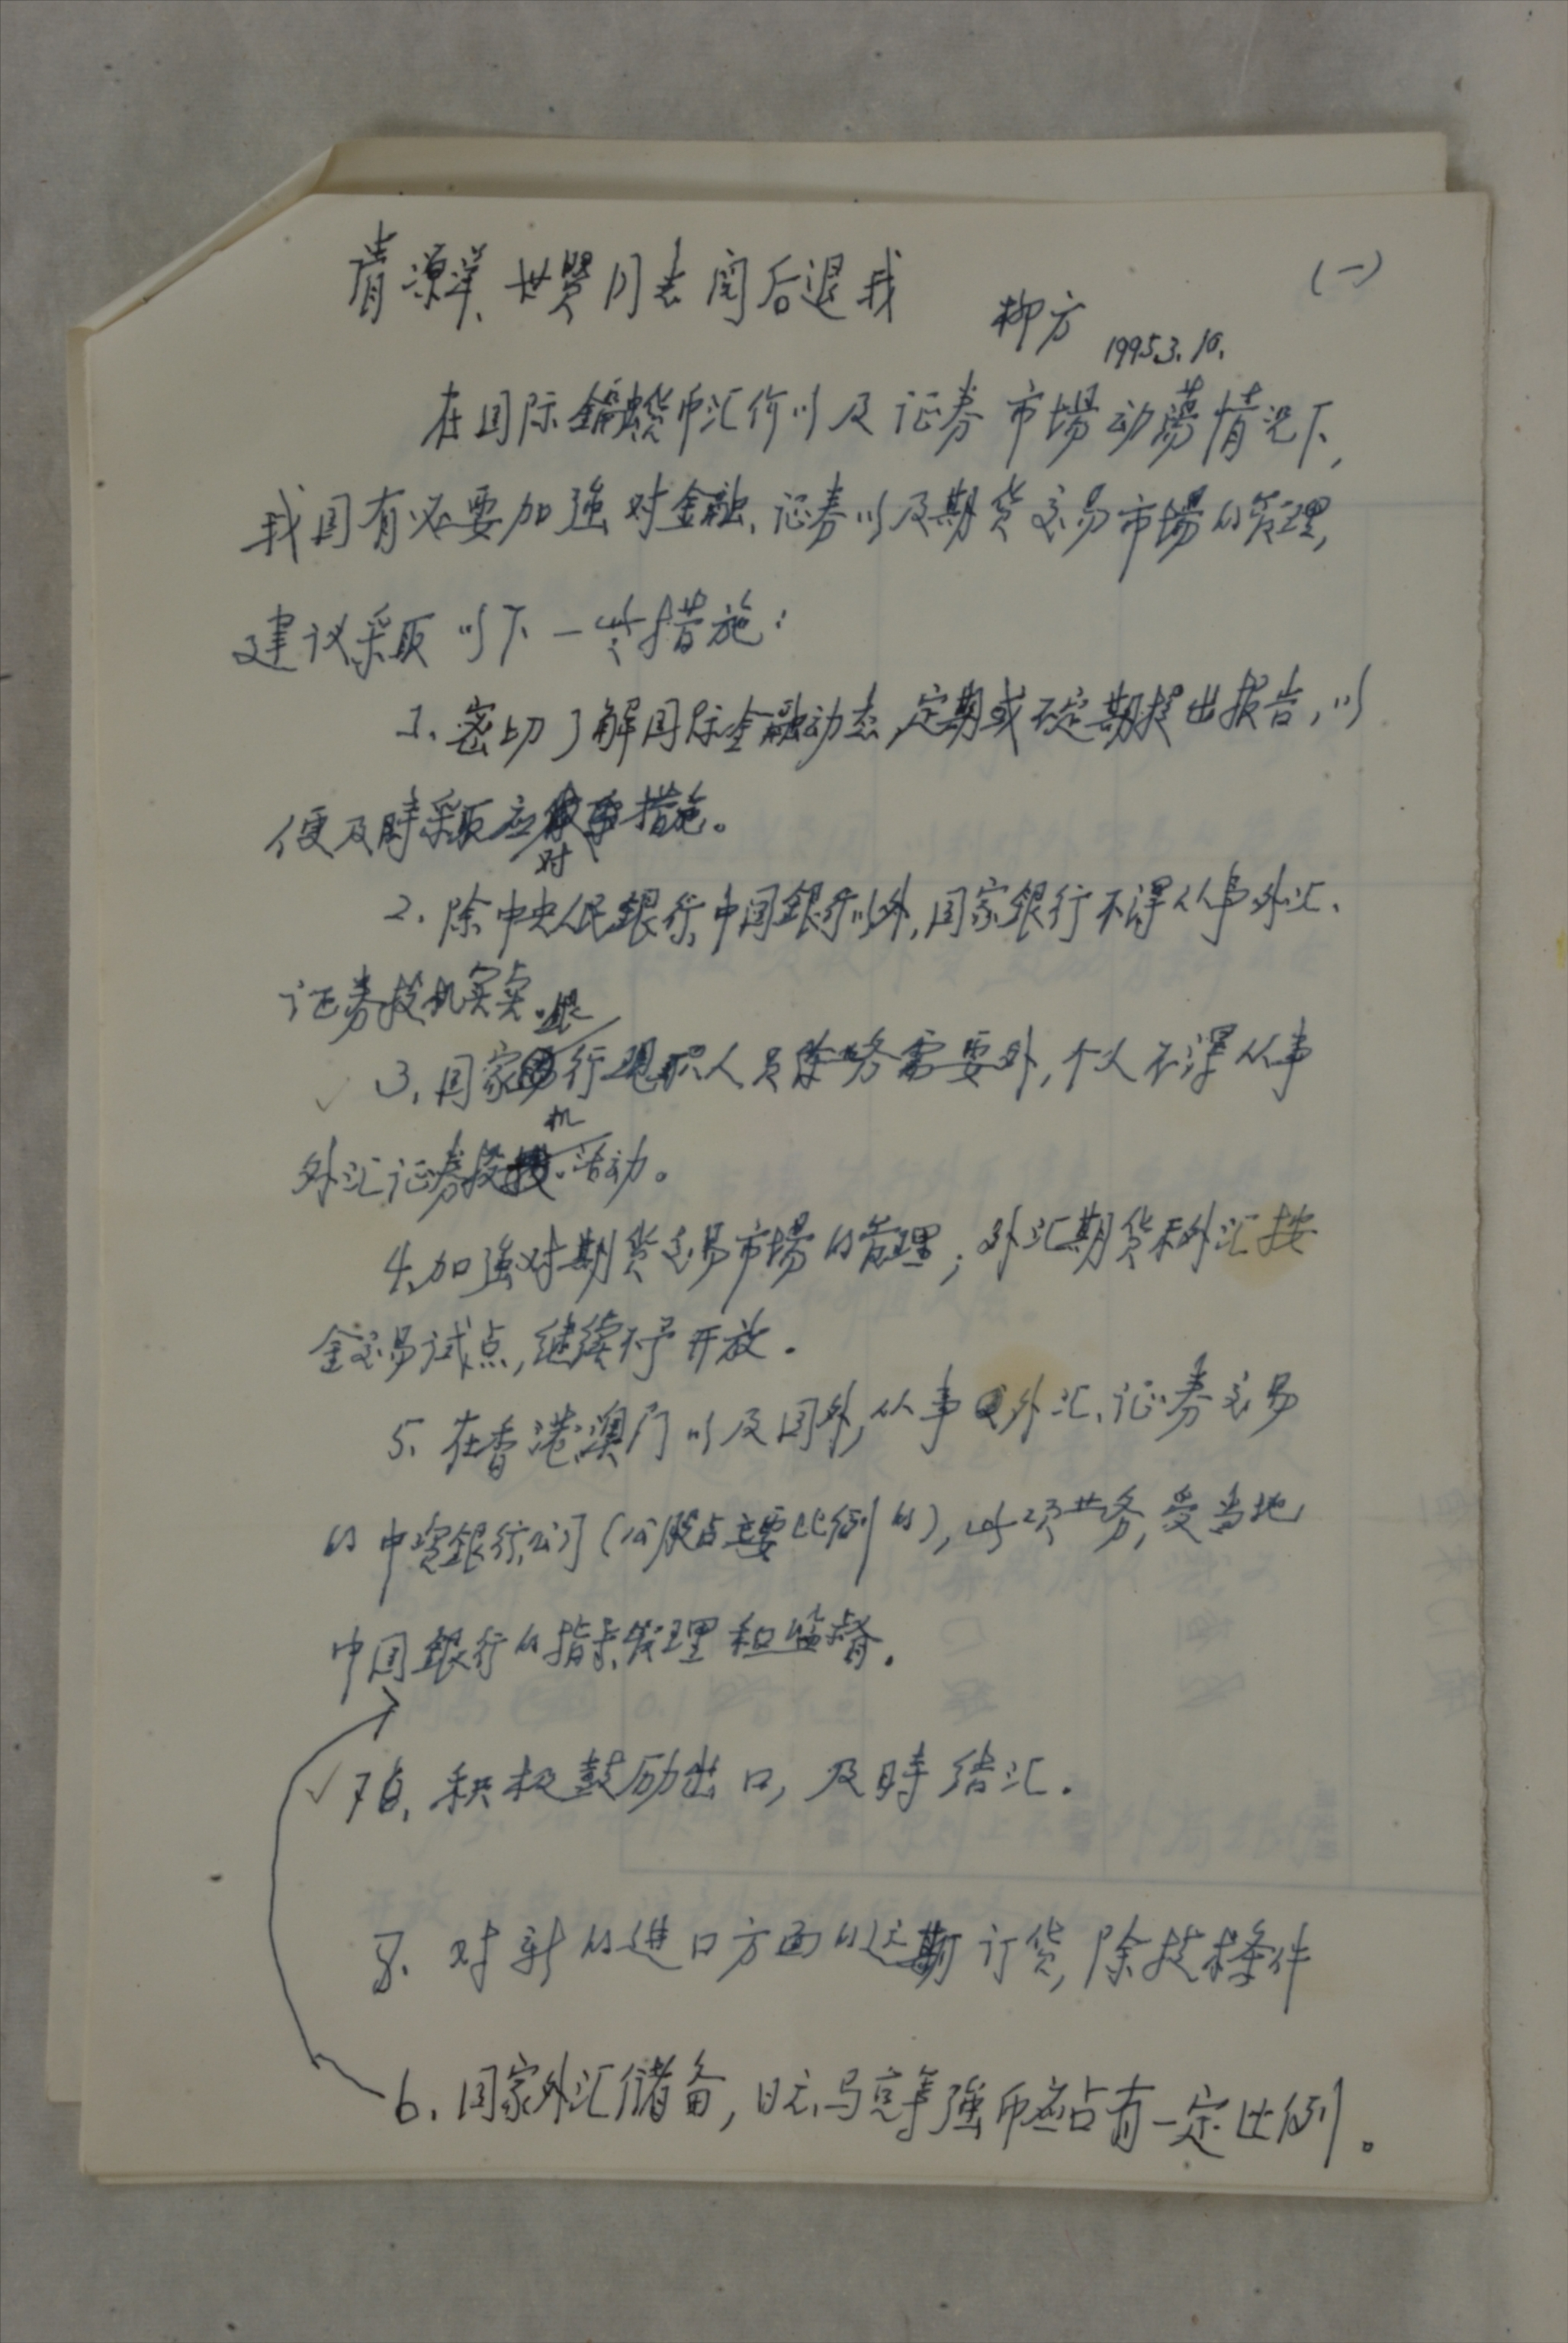 请源洋、世贤同志阅后退我
(一)
柳方
1995.3.10.
在国际金融货币汇价以及证券市場动荡情况下,
我国有必要加強对金融、证券以及期货交易市場的管理,
建议采取以下一些措施:
1、密切了解国际金融动态,定期或不定期提出报告,以
便及時采取应对措施。
2、除中央人民銀行、中国銀行以外,国家銀行不得从事外汇、
证券投机买卖。
3、国家銀行现职人员除业务需要外,个人不得从事
外汇证券投机活动。
4、加強对期货交易市場的管理;外汇期货和外汇按
金交易试点,继续不予开放.
5、在香港、澳门以及国外,从事外汇、证券交易
的中資銀行、公司(公股占主要比例的),此项业务,受当地
中国銀行的指导、管理和监督.
7、积极鼓励出口,及時结汇.
8、对新的进口方面的远期订货,除技术条件
6、国家外汇储备,日元、马克等強币应占有一定比例。